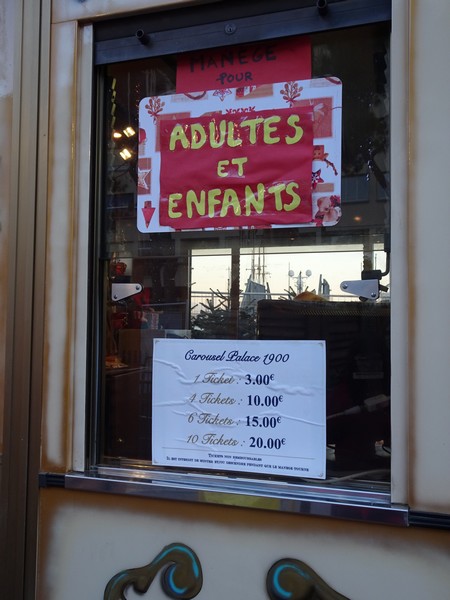 MANEGE
POUR
ADULTES
ET
ENFANTS
Carousel Palace 1900
1 Ticket : 3.00€
4 Tickets : 10.00€
6 Tickets : 15.00€
10 Tickets : 20.00€
TICKETS NON REMBOURSABLES